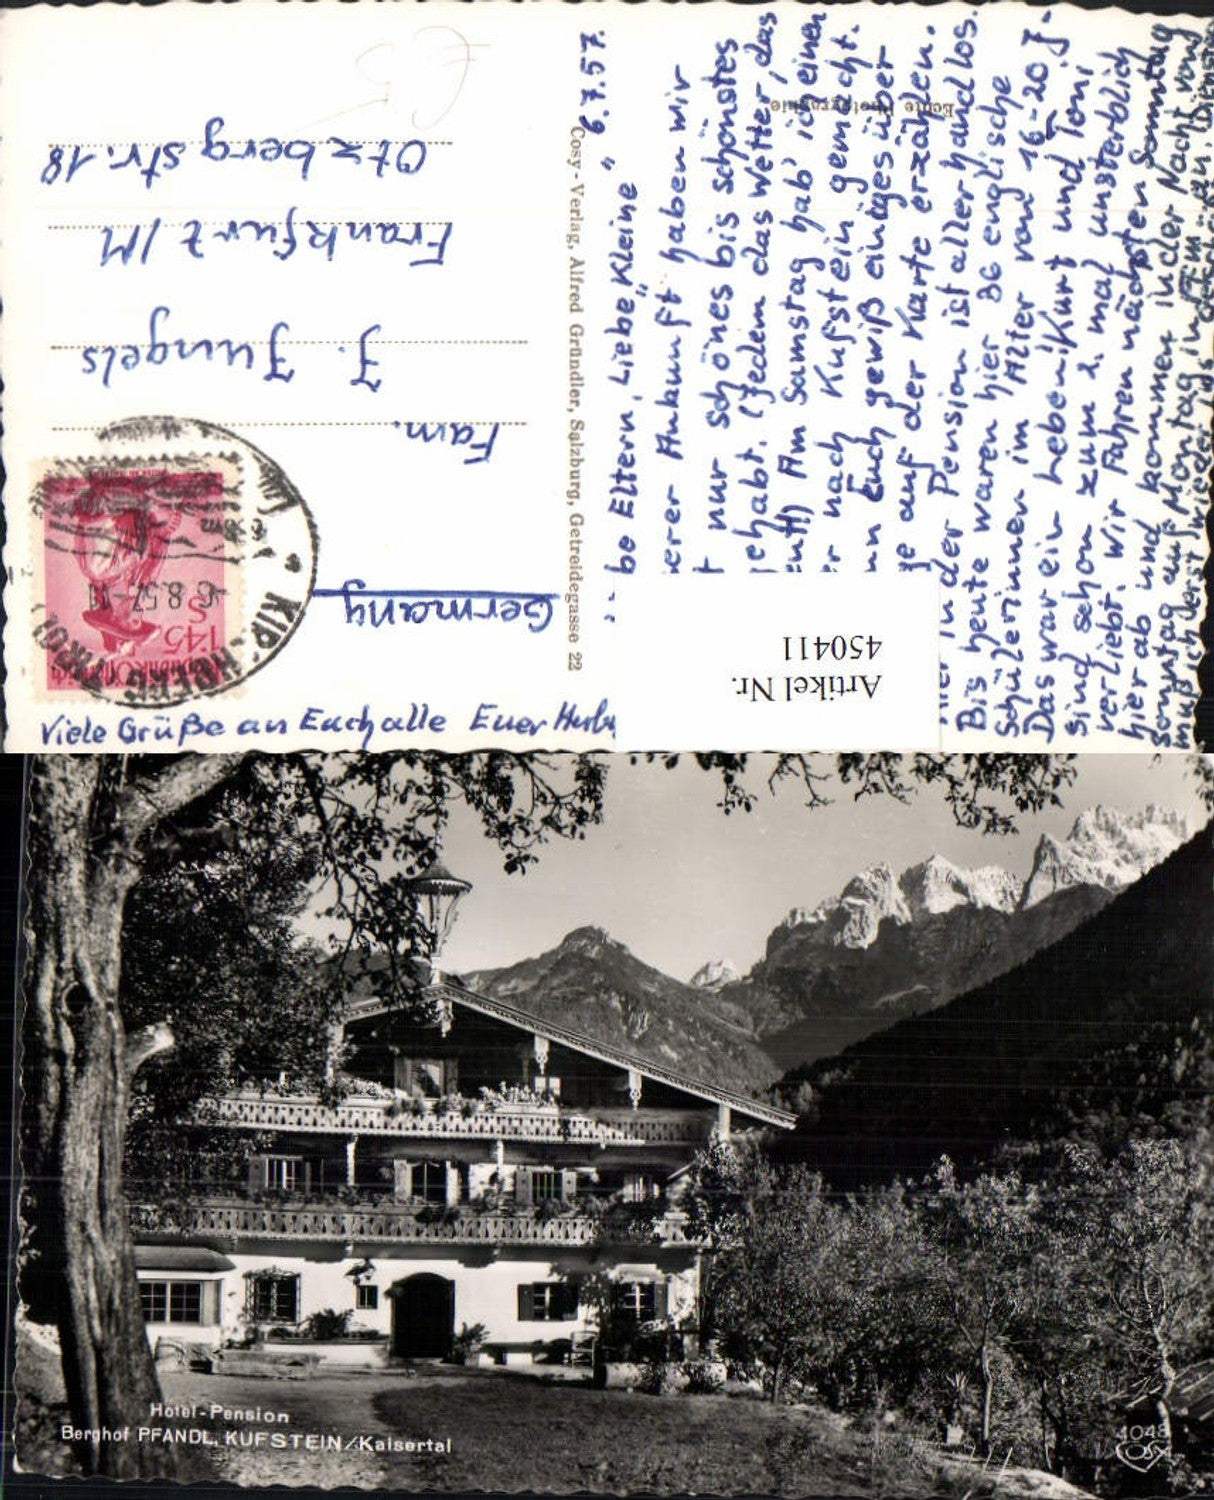 6.7.57.
be Eltern, Liebe „Kleine"
erer Ankunft haben wir
t nur schönes bis schönstes
ehabt. (Jedem das Wetter, das
Am Samstag hab' ich einen
r nach Kufstein gemacht.
nn Euch gewiß einiges über
ge auf der Karte erzählen.
in der Pension ist allerhand los.
Bis heute waren hier 36 englische
Schülerinnen im Alter von 16-20 J-
Das war ein Leben! Kurt und Toni
sind schon zum 2. mal unsterblich
verliebt. Wir fahren nächsten Sonntag
hier ab und kommen in der Nacht von
Sonntag auf Montag in Ffm an.
muß ich erst wieder
Viele Grüße an Euch alle Euer
Fam.
J. Jungels
Frankfurt/M
Otzbergstr. 18
Germany
Cosy-Verlag, Alfred Gründler, Salzburg, Getreidegasse 22
Echte Photographie
-6.8.57-11
1·45
S
Artikel Nr.
450411
Hotel-Pension
Berghof PFANDL, KUFSTEIN/Kaisertal
COSY